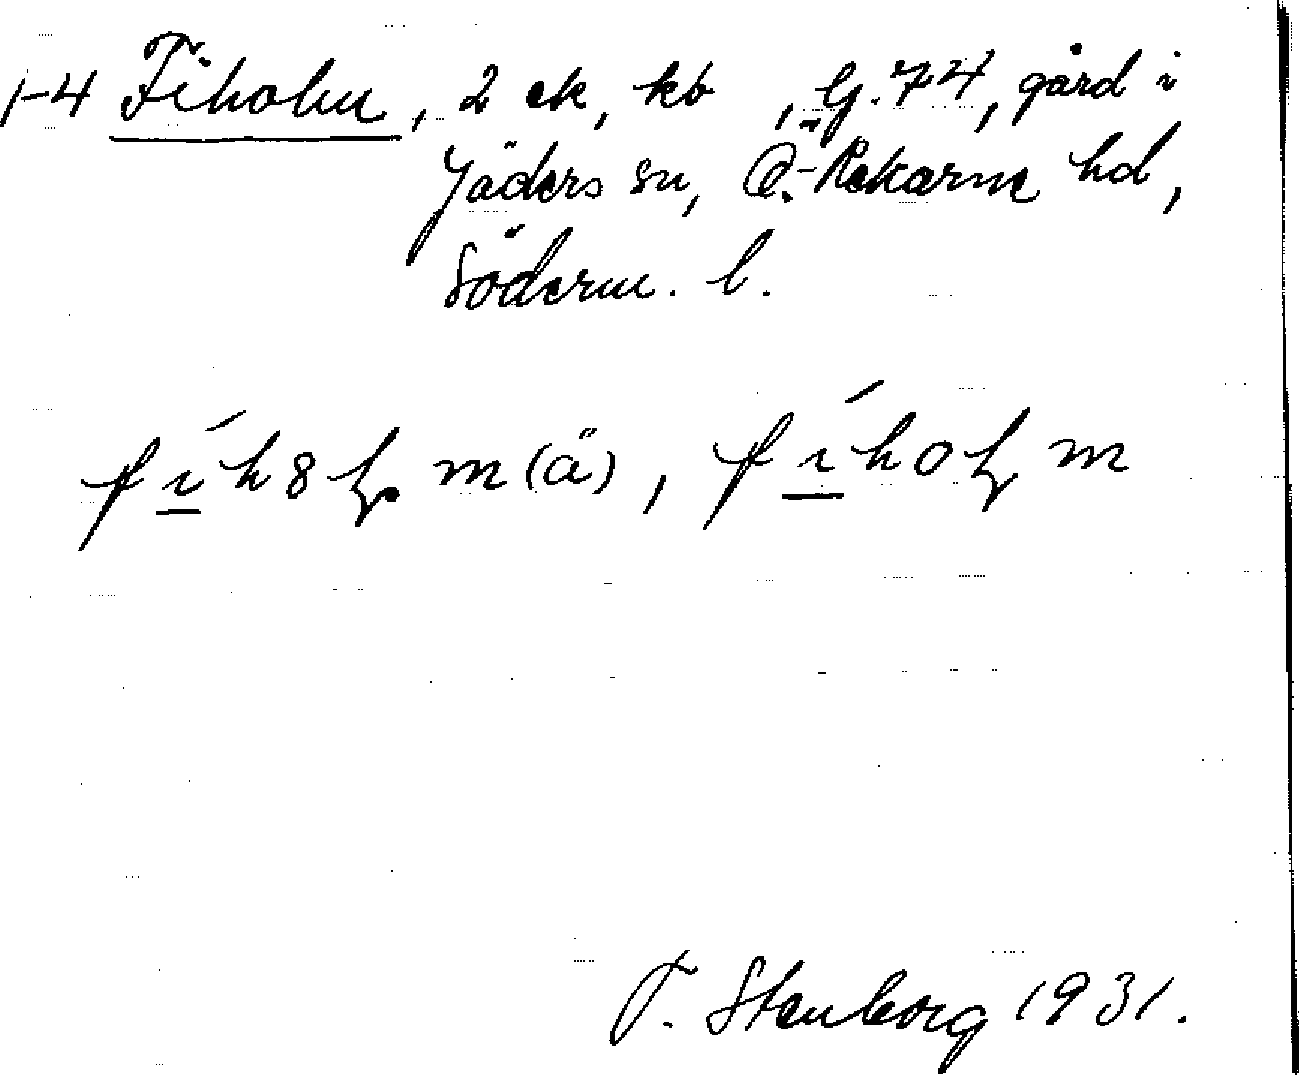 1-4 Fiholm, 2 ek, kb, G. 74, gård i
Jäders sn, Ö.-Rekarne hd,
Söderm. l.
fíh8ɫ. m (ä), fíhoɫ m
T. Stenborg 1931.